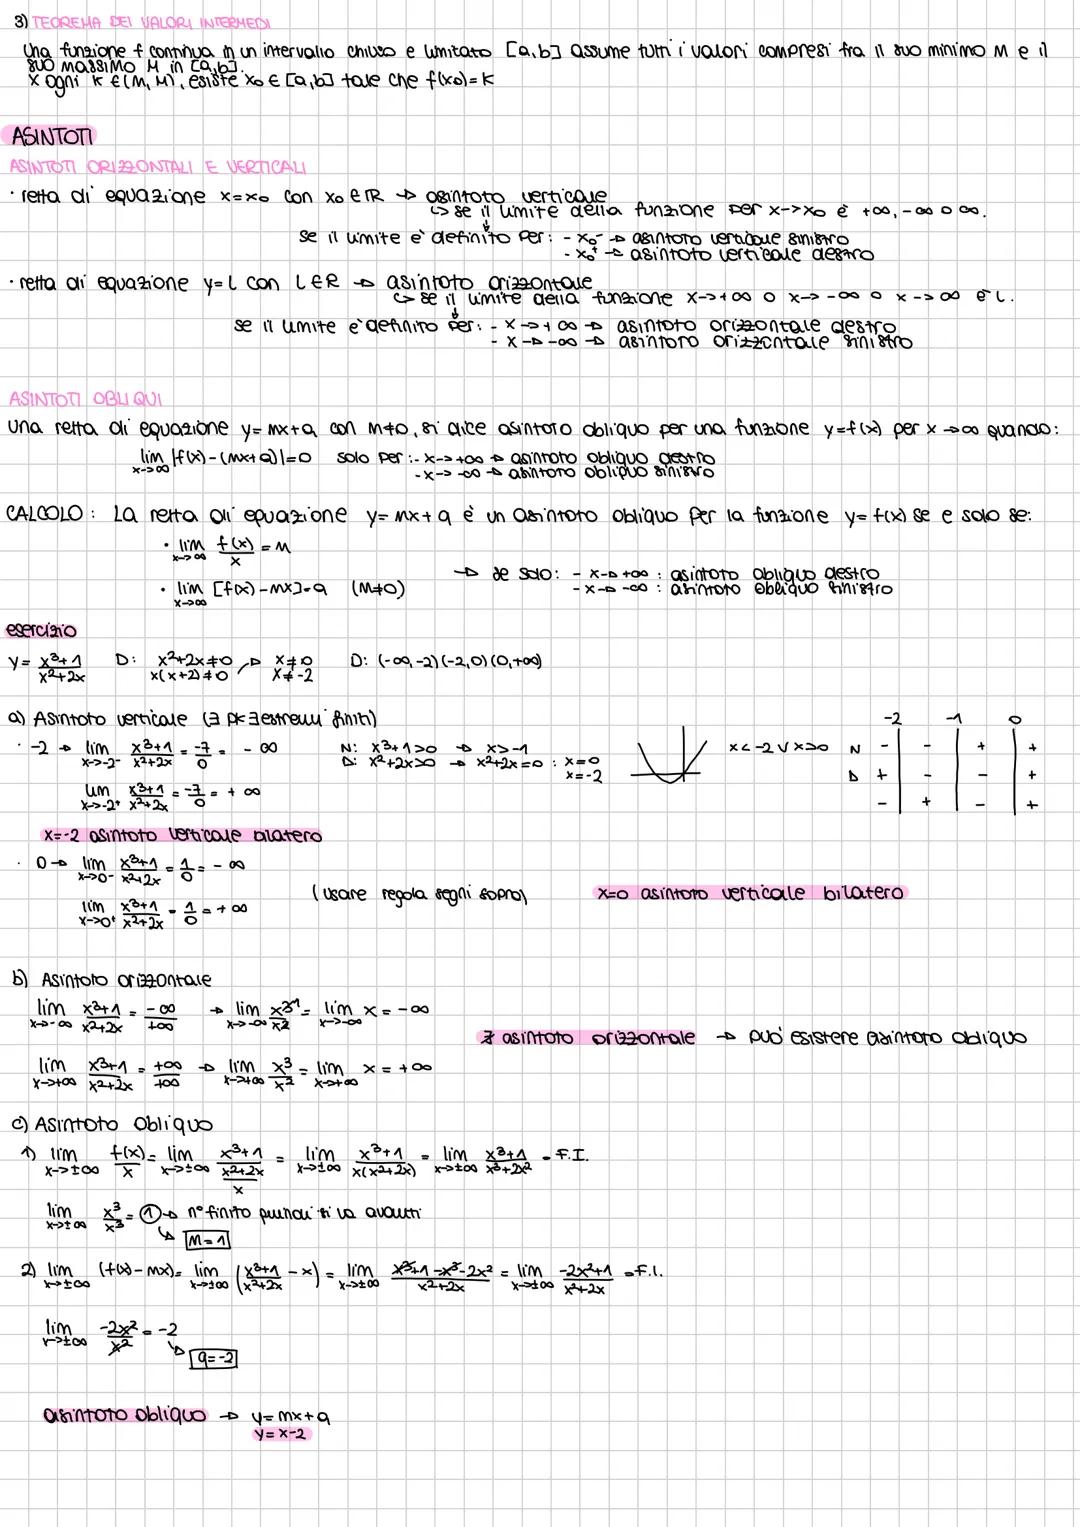 3) TEOREMA DEI VALORI INTERMEDI
Una funzione f continua in un intervallo chiuso e limitato [a,b] assume tutti i valori compresi fra il suo minimo m e il
suo massimo M in [a,b].
x ogni K ∈ (m, M), esiste x₀ ∈ [a,b] tale che f(x₀)=K
ASINTOTI
ASINTOTI ORIZZONTALI E VERTICALI
· retta di equazione x=x₀ con x₀ ∈ R → asintoto verticale
↳ se il limite della funzione per x->x₀ è +∞, -∞ o ∞.
se il limite è definito per: - x₀⁻ → asintoto verticale sinistro
- x₀⁺ → asintoto verticale destro
· retta di equazione y=l con l ∈ R → asintoto orizzontale
↳ se il limite della funzione x->+∞ o x-> -∞ o x->∞ è l.
se il limite è definito per: - x->+∞ → asintoto orizzontale destro
- x->-∞ → asintoto orizzontale sinistro
ASINTOTI OBLIQUI
una retta di equazione y=mx+q con m≠0, si dice asintoto obliquo per una funzione y=f(x) per x->∞ quando:
lim x->∞ |f(x)-(mx+q)|=0 solo per:- x->+∞ → asintoto obliquo destro
- x-> -∞ → asintoto obliquo sinistro
CALCOLO: La retta di equazione y=mx+q è un asintoto obliquo per la funzione y=f(x) se e solo se:
· lim x->∞ f(x)/x = m
→ se solo: - x->+∞ : asintoto obliquo destro
· lim x->∞ [f(x)-mx]=q (m≠0)
- x->-∞ : asintoto obliquo sinistro
esercizio
y= x³+1/x²+2x D: x²+2x≠0 → x≠0 D: (-∞,-2)(-2,0)(0,+∞)
x(x+2)≠0 x≠-2
a) Asintoto verticale (∃ pk ∃ estremi finiti)
-2 -1 0
· -2 → lim x->-2⁻ x³+1/x²+2x = -7/0 = -∞ N: x³+1>0 → x>-1 x<-2 V x>0 N - - + +
D: x²+2x>0 → x²+2x=0 : x=0 D + - - +
x=-2
lim x->-2⁺ x³+1/x²+2x = -7/0 = +∞ - + - +
x=-2 asintoto verticale bilatero
· 0 → lim x->0⁻ x³+1/x²+2x = 1/0 = -∞
(usare regola segni sopra) x=0 asintoto verticale bilatero
lim x->0⁺ x³+1/x²+2x = 1/0 = +∞
b) Asintoto orizzontale
lim x->-∞ x³+1/x²+2x = -∞/+∞ → lim x->-∞ x³/x² = lim x->-∞ x = -∞
∄ asintoto orizzontale → può esistere asintoto obliquo
lim x->+∞ x³+1/x²+2x = +∞/+∞ → lim x->+∞ x³/x² = lim x->+∞ x = +∞
c) Asintoto obliquo
1) lim x->±∞ f(x)/x = lim x->±∞ x³+1/x²+2x/x = lim x->±∞ x³+1/x(x²+2x) = lim x->±∞ x³+1/x³+2x² = F.I.
lim x->±∞ x³/x³ = 1 → n° finito quindi si va avanti
↳ m=1
2) lim x->±∞ (f(x)-mx)= lim x->±∞ (x³+1/x²+2x - x) = lim x->±∞ x³+1-x³-2x²/x²+2x = lim x->±∞ -2x²+1/x²+2x = F.I.
lim x->±∞ -2x²/x² = -2
↳ q=-2
asintoto obliquo → y=mx+q
y=x-2